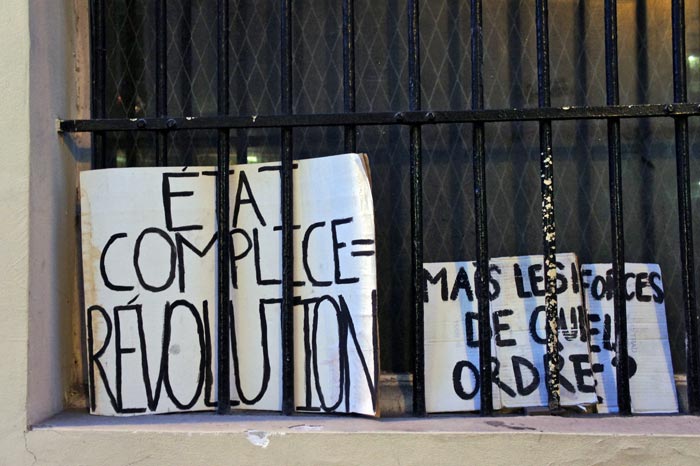 ÉTAT
COMPLICE=
RÉVOLUTION
MAIS LES FORCES
DE QUEL
ORDRE?